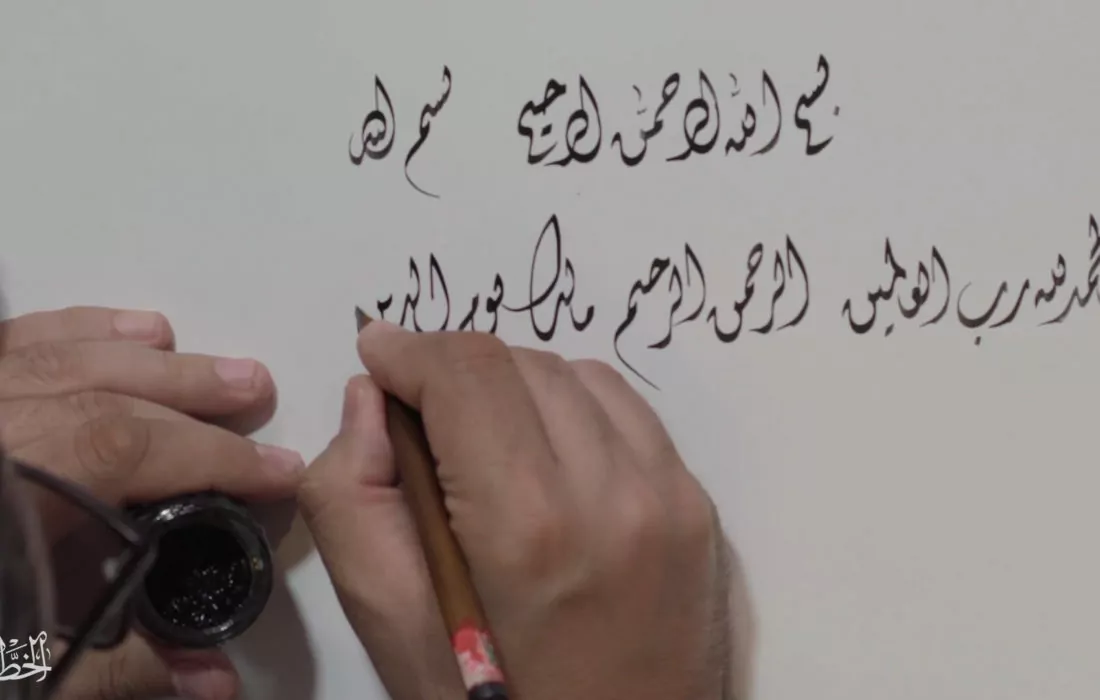 بسم الله الرحمن الرحيم بسم الله
الحمد لله رب العالمين الرحمن الرحيم مالك يوم الدين